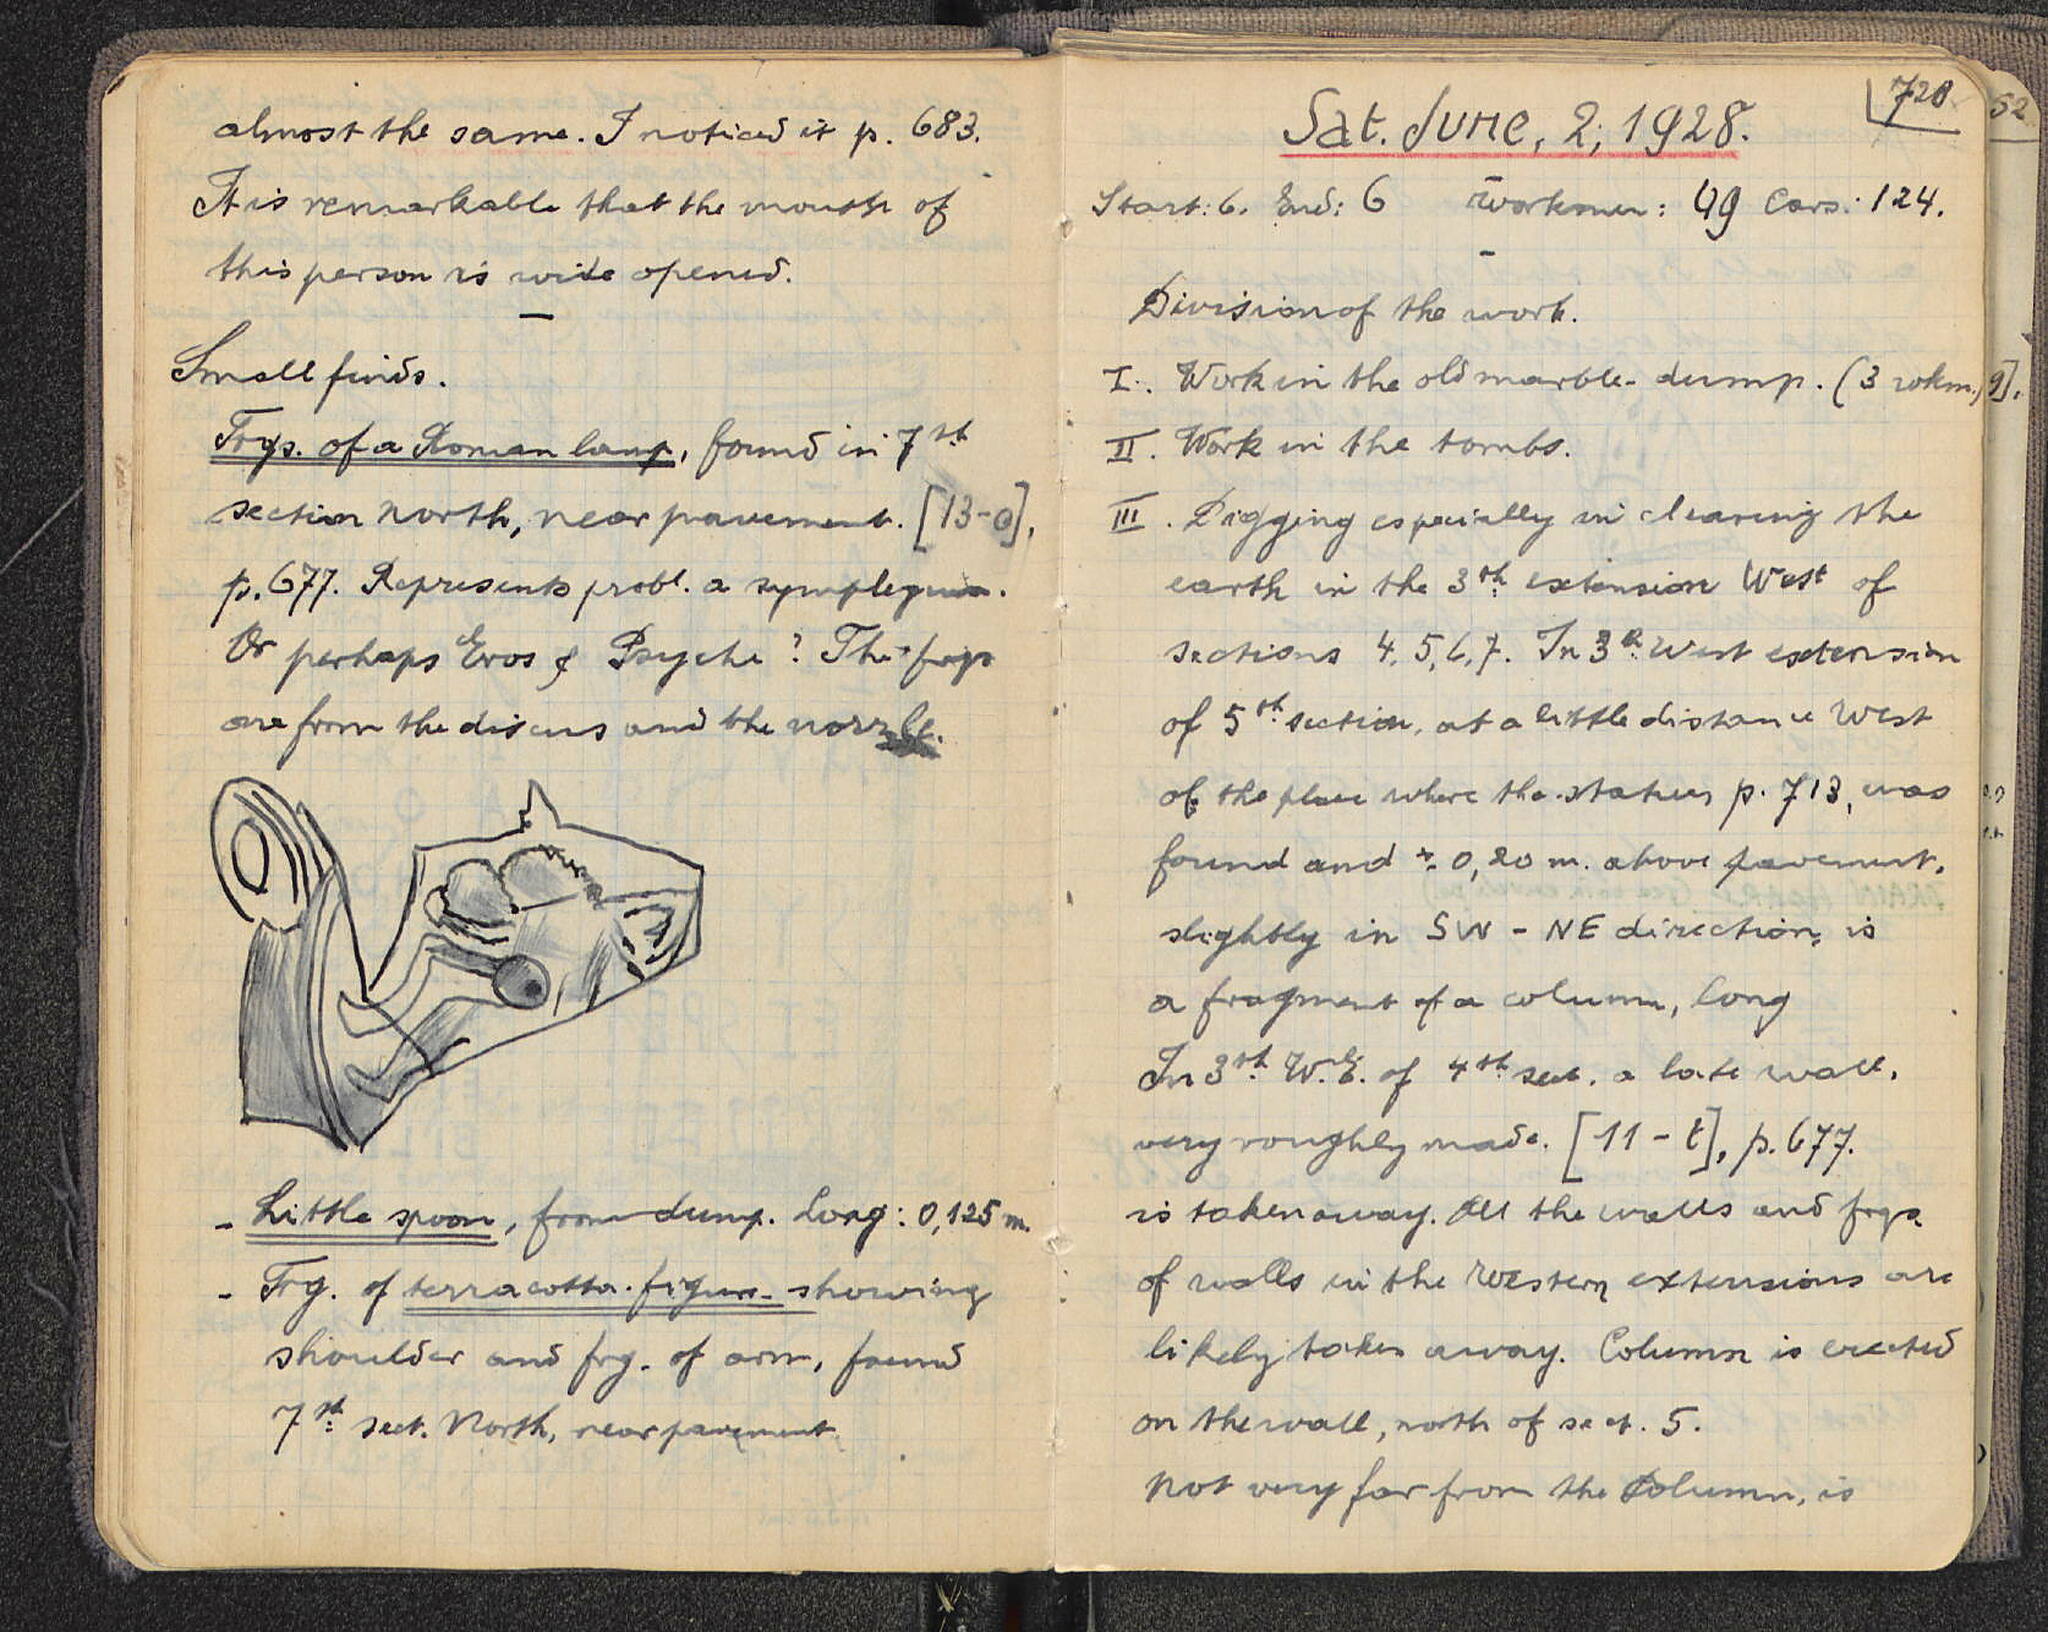 almost the same. I noticed it p. 683.
It is remarkable that the mouth of
this person is wide opened.
Small finds.
Frgs. of a Roman lamp, found in 7th
section North, near pavement. [13-o],
p. 677. Represents probl. a symplegma.
Or perhaps Eros & Psyche? The frgs
are from the discus and the nozzle.
- Little spoon, from dump. Long: 0,125 m.
- Frg. of terracotta-figure showing
shoulder and frg. of arm, found
7th sect. North, near pavement
720
Sat. June, 2, 1928.
Start: 6. End: 6 Workmen: 49 Cars: 124.
Division of the work.
I. Work in the old marble-dump. (3 wkm.)
II. Work in the tombs.
III. Digging especially in clearing the
earth in the 3th extension West of
sections 4, 5, 6, 7. In 3th West extension
of 5th section, at a little distance West
of the place where the statue, p. 713, was
found and ± 0,20 m. above pavement,
slightly in SW - NE direction, is
a fragment of a column, long
In 3th W.E. of 4th sect. a late wall,
very roughly made. [11 - t], p. 677.
is taken away. All the walls and frgs
of walls in the Western extensions are
likely taken away. Column is erected
on the wall, north of sect. 5.
Not very far from the Column, is
52
9].